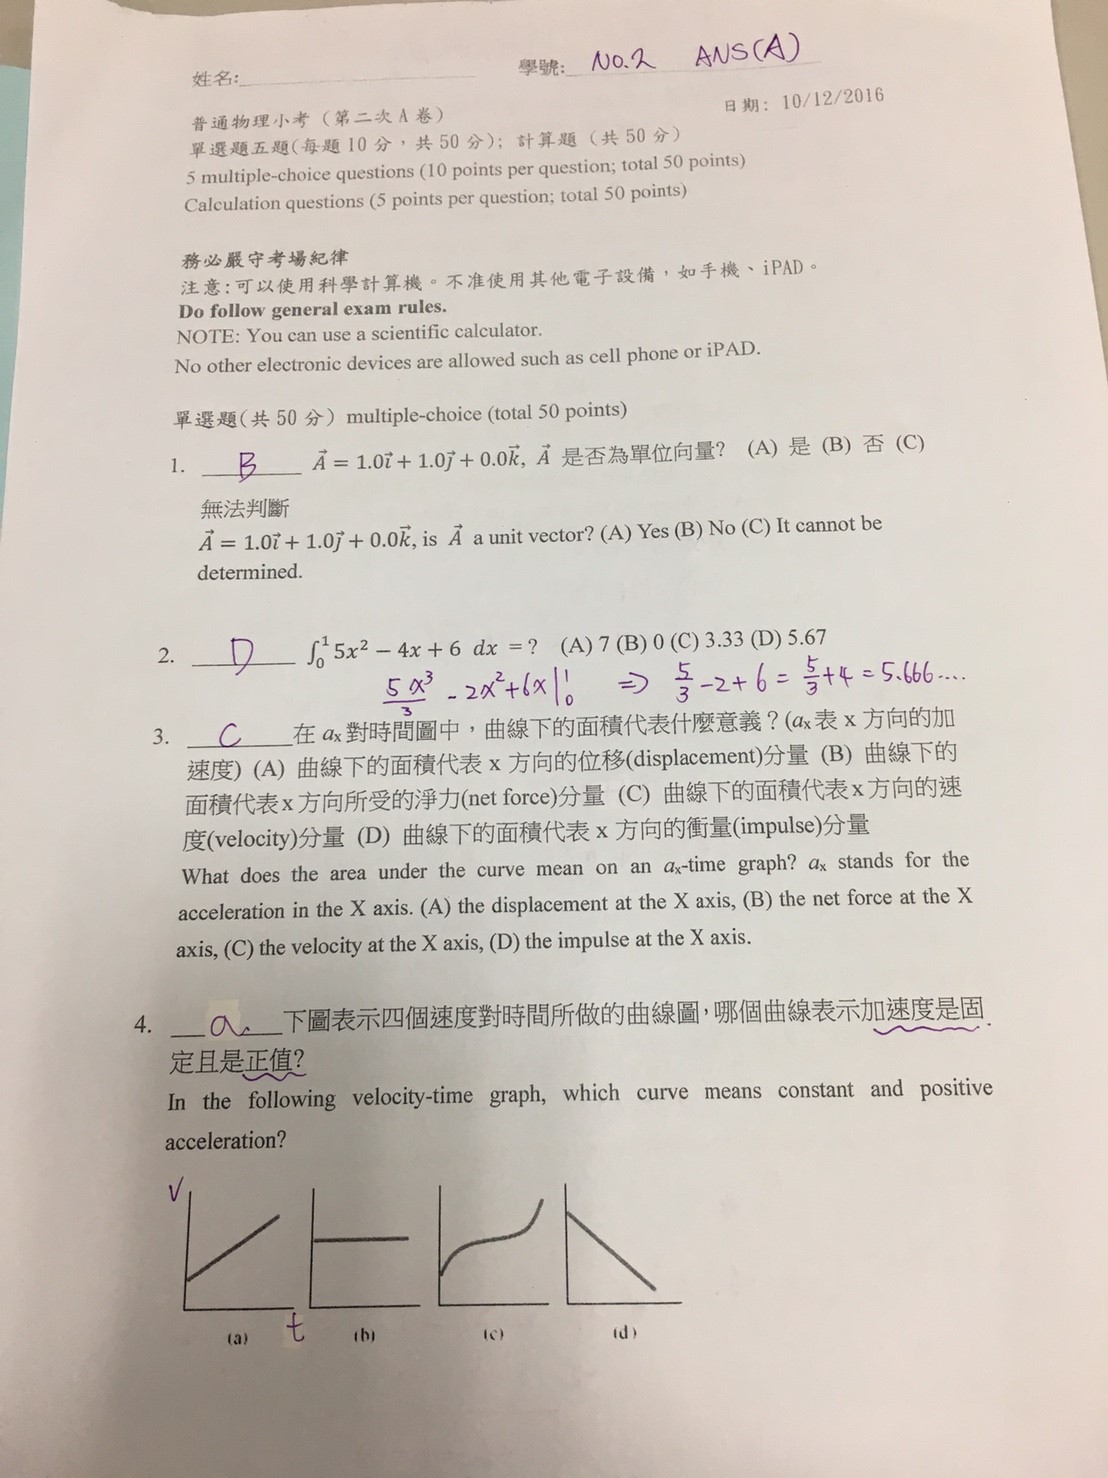 姓名: 學號: No.2 ANS(A)
日期: 10/12/2016
普通物理小考（第二次 A 卷）
單選題五題(每題 10 分，共 50 分); 計算題（共 50 分）
5 multiple-choice questions (10 points per question; total 50 points)
Calculation questions (5 points per question; total 50 points)
務必嚴守考場紀律
注意:可以使用科學計算機。不准使用其他電子設備，如手機、iPAD。
Do follow general exam rules.
NOTE: You can use a scientific calculator.
No other electronic devices are allowed such as cell phone or iPAD.
單選題(共 50 分) multiple-choice (total 50 points)
1. B A⃗ = 1.0i⃗ + 1.0j⃗ + 0.0k⃗, A⃗ 是否為單位向量? (A) 是 (B) 否 (C)
無法判斷
A⃗ = 1.0i⃗ + 1.0j⃗ + 0.0k⃗, is A⃗ a unit vector? (A) Yes (B) No (C) It cannot be
determined.
2. D ∫₀¹ 5x² − 4x + 6 dx = ? (A) 7 (B) 0 (C) 3.33 (D) 5.67
5x³/3 - 2x²+6x|₀¹ ⇒ 5/3 -2+6 = 5/3+4 = 5.666....
3. C 在 aₓ 對時間圖中，曲線下的面積代表什麼意義？(aₓ 表 x 方向的加
速度) (A) 曲線下的面積代表 x 方向的位移(displacement)分量 (B) 曲線下的
面積代表 x 方向所受的淨力(net force)分量 (C) 曲線下的面積代表 x 方向的速
度(velocity)分量 (D) 曲線下的面積代表 x 方向的衝量(impulse)分量
What does the area under the curve mean on an aₓ-time graph? aₓ stands for the
acceleration in the X axis. (A) the displacement at the X axis, (B) the net force at the X
axis, (C) the velocity at the X axis, (D) the impulse at the X axis.
4. a 下圖表示四個速度對時間所做的曲線圖，哪個曲線表示加速度是固
定且是正值?
In the following velocity-time graph, which curve means constant and positive
acceleration?
V
t
(a) (b) (c) (d)